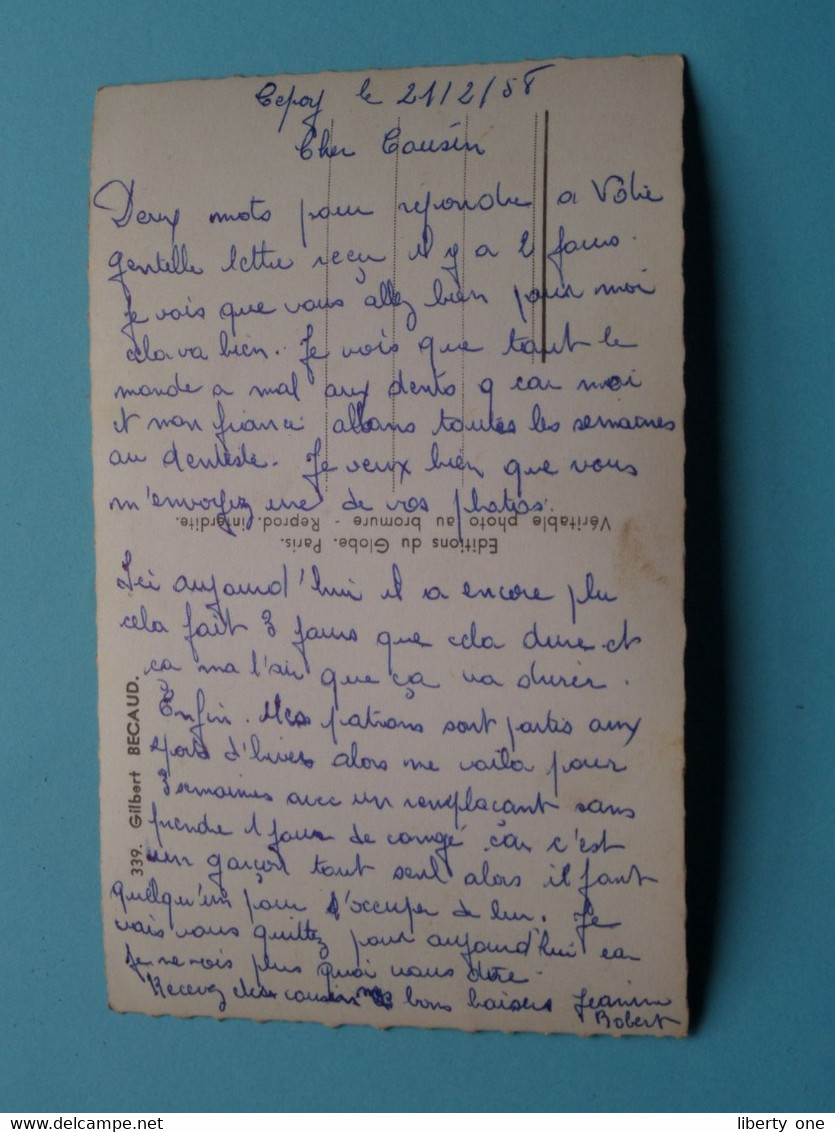 Cepoy le 21/2/58
Cher Cousin
Deux mots pour répondre a Votre
gentelle lettre reçu il y a 2 jours.
je vois que vous allez bien pour moi
cela va bien. Je vois que tout le
monde a mal aux dents car moi
et mon fiancé allons toutes les semaines
au dentiste. Je veux bien que vous
m'envoyez une de vos photos.
Véritable photo au bromure - Reprod. interdite.
Editions du Globe. Paris.
Ici aujourd'hui il a encore plu
cela fait 3 jours que cela dure et
ca ma l'air que ça va durer.
Enfin. Mes patrons sont partis aux
sports d'hivers alors me voila pour
3 semaines avec un remplaçant sans
prendre 1 jour de congé car c'est
un garçon tout seul alors il faut
quelqu'un pour s'occuper de lui. Je
vais vous quittez pour aujourd'hui car
je ne vois plus quoi vous dire.
Recevez cher cousin mes bons baisers Jeanine
Robert
339. Gilbert BECAUD.
liberty one